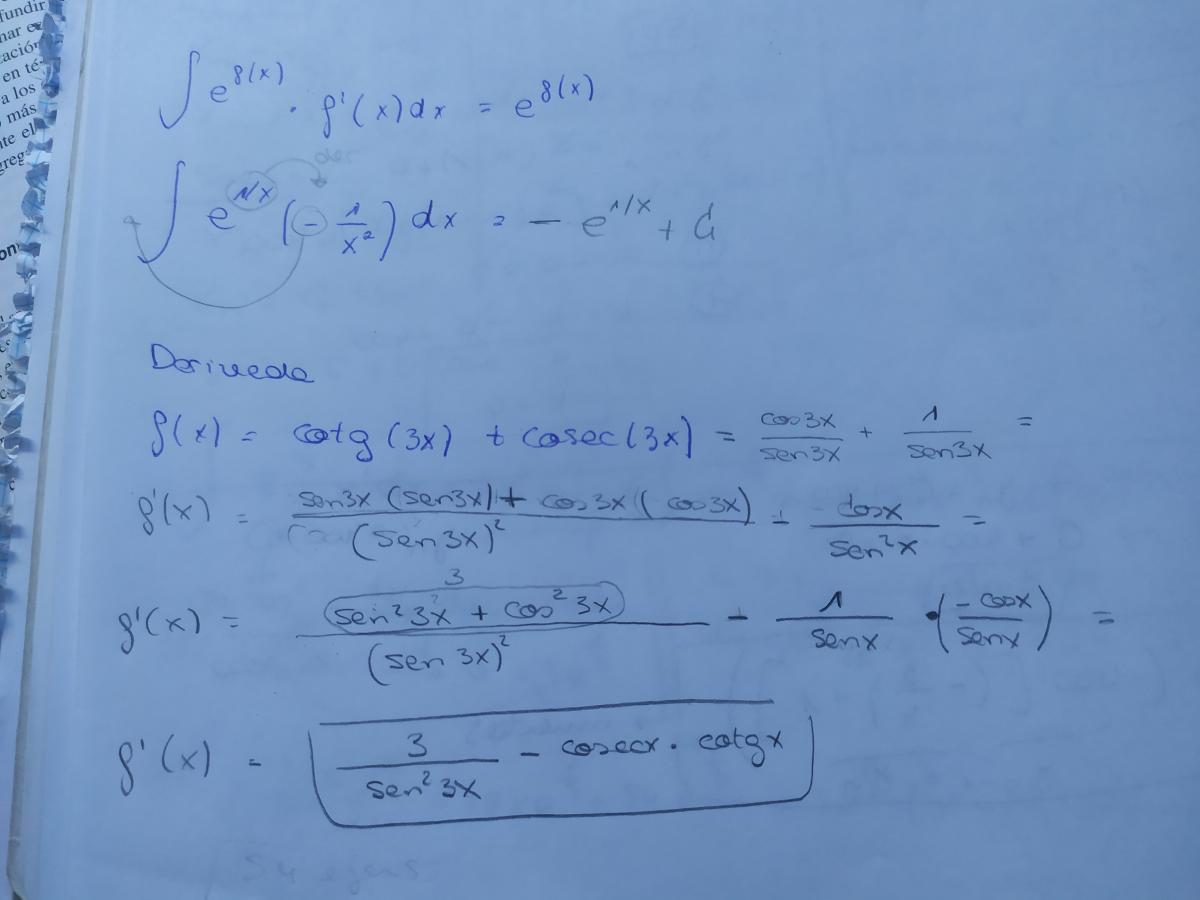 fundir
nar e
tación
en té
a los
más
nte el
greg
∫ e^{f(x)} · f'(x) dx = e^{f(x)}
der
∫ e^{1/x} (- 1/x²) dx = - e^{1/x} + C
on
Deriveda
f(x) = cotg (3x) + cosec (3x) = cos3x/sen3x + 1/sen3x =
f'(x) = sen3x (sen3x) + cos3x (cos3x)/(sen 3x)² + cosx/sen²x =
3
f'(x) = sen²3x + cos²3x/(sen 3x)² + 1/senx · (-cosx/senx) =
f'(x) = 3/sen²3x - cosecx · cotgx